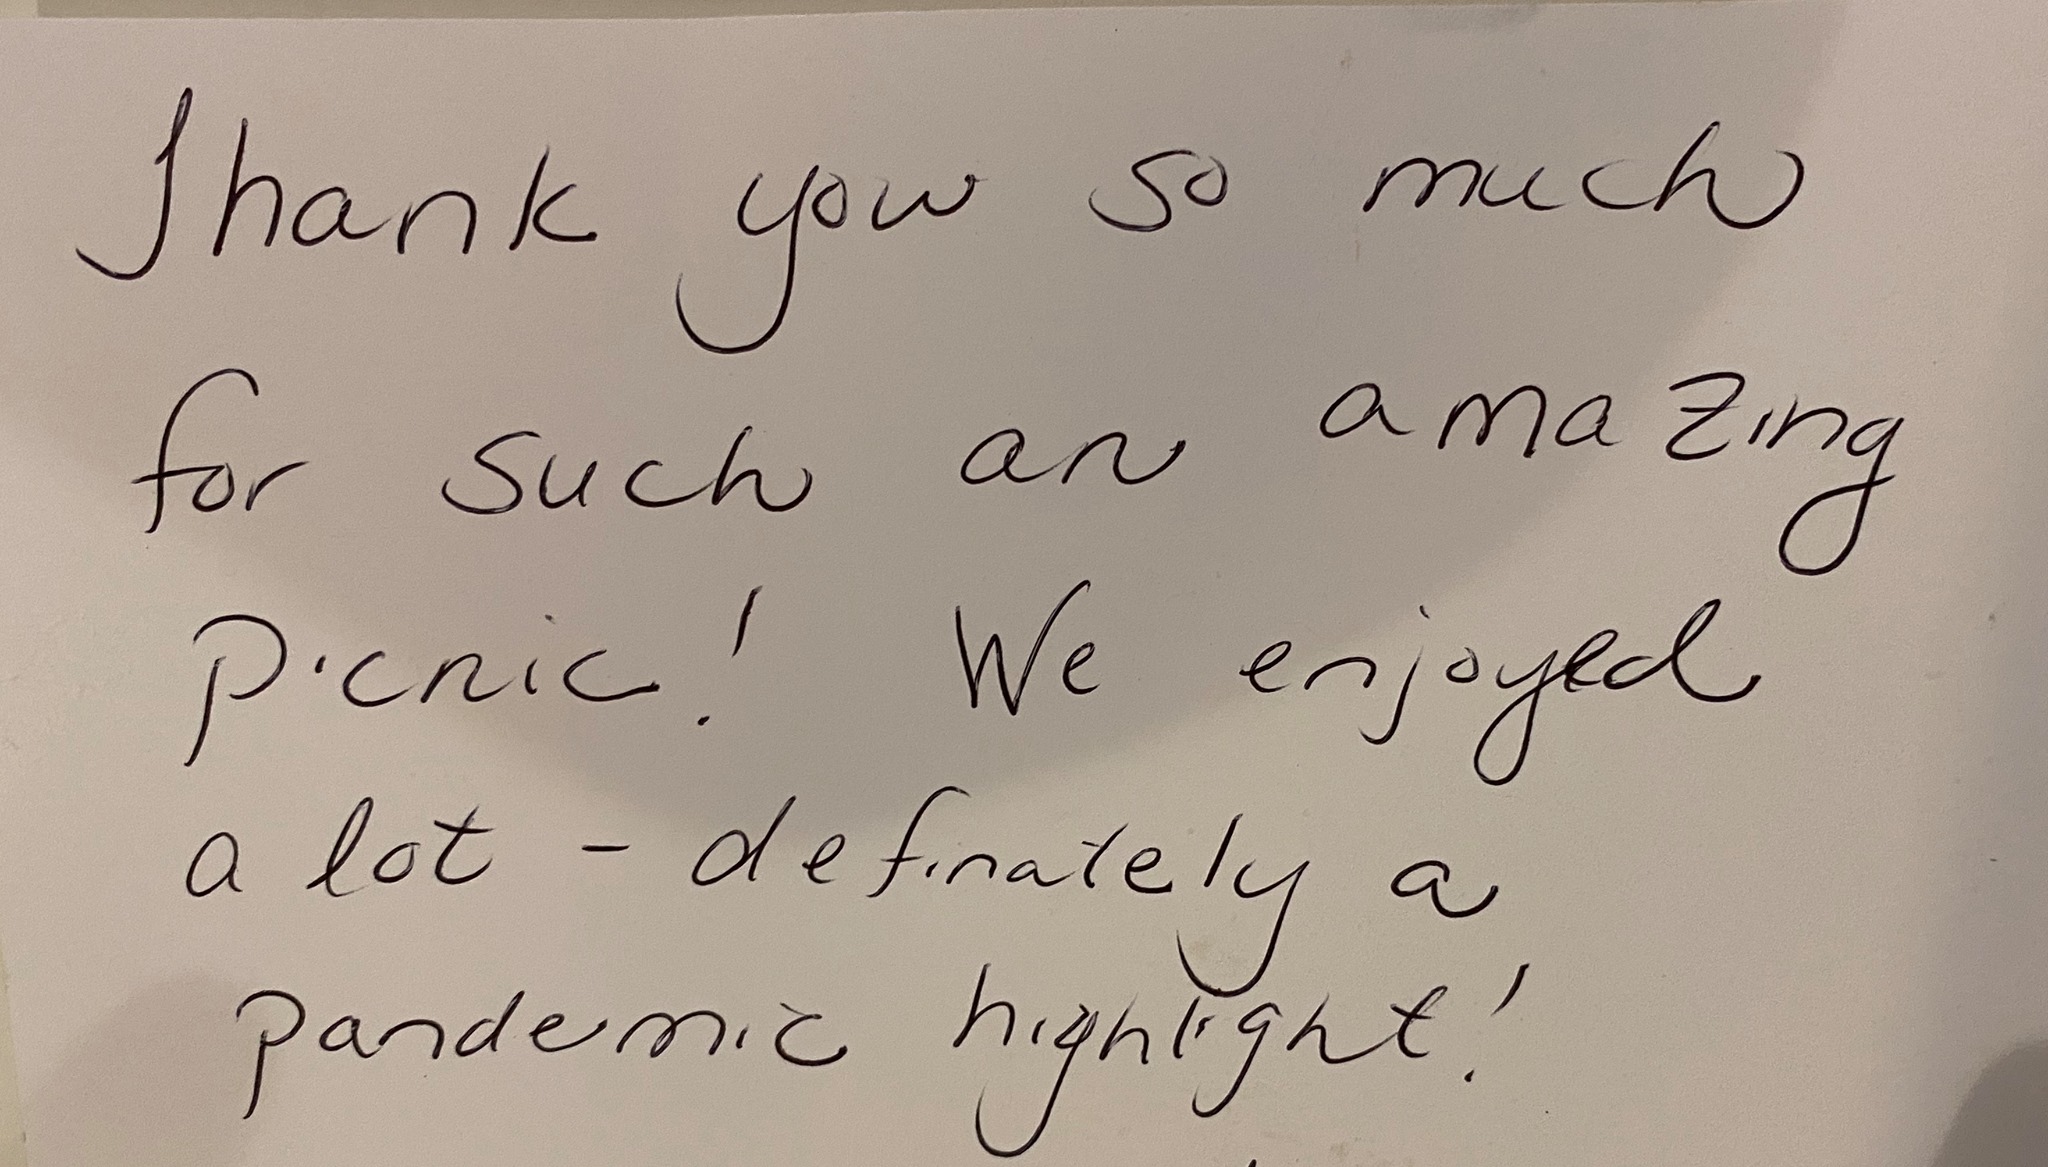 Thank you so much
for such an amazing
picnic! We enjoyed
a lot - definately a
pandemic highlight!